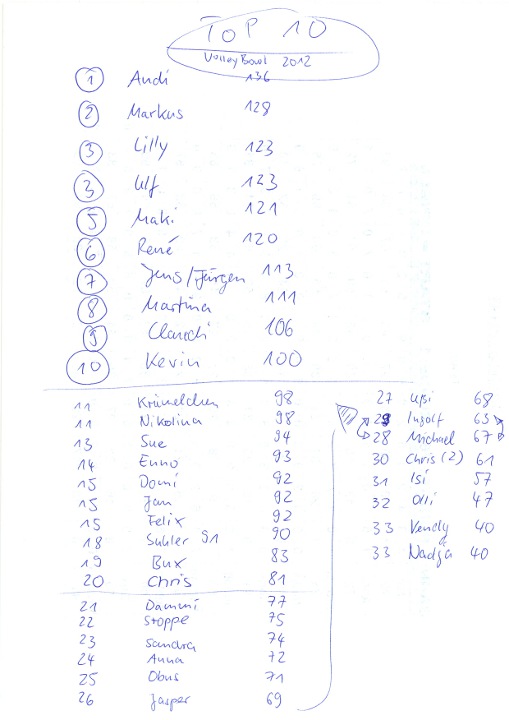 TOP 10
VolleyBowl 2012
1 Andi 136
2 Markus 128
3 Lilly 123
3 Ulf 123
5 Maki 121
6 René 120
7 Jens/Jürgen 113
8 Martina 111
9 106
10 Kevin 100
11 Krümelchen 98
11 Nikolina 98
13 Sue 94
14 Enno 93
15 Domi 92
15 Jan 92
15 Felix 92
18 91 90
19 Bux 83
20 Chris 81
21 Dammi 77
22 Stoppe 75
23 Sandra 74
24 Anna 72
25 Obus 71
26 Jasper 69
27 68
29 Ingolf 65
28 Michael 67
30 Chris (2) 61
31 Isi 57
32 Olli 47
33 Vendy 40
33 Nadja 40